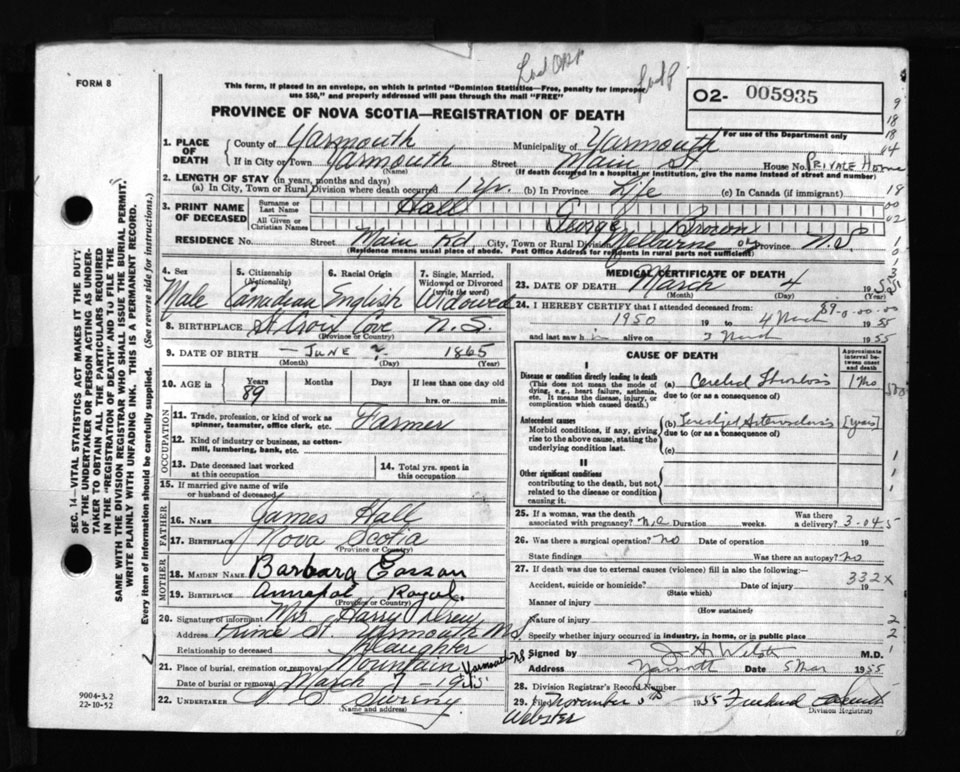 FORM 8
This form, if placed in an envelope, on which is printed "Dominion Statistics—Free, penalty for improper
use $50," and properly addressed will pass through the mail "FREE"
02- 005935
For use of the Department only
PROVINCE OF NOVA SCOTIA—REGISTRATION OF DEATH
1. PLACE OF DEATH
County of Yarmouth Municipality of Yarmouth
If in City or Town Yarmouth Street Main St House No. PRIVATE Home
(Name) (If death occurred in a hospital or institution, give the name instead of street and number)
2. LENGTH OF STAY (in years, months and days)
(a) In City, Town or Rural Division where death occurred 1 yr. (b) In Province Life (c) In Canada (if immigrant)
3. PRINT NAME OF DECEASED
Surname or Last Name Hall
All Given or Christian Names George Brown
RESIDENCE No. Street Main Rd City, Town or Rural Division Melbourne Province N.S
(Residence means usual place of abode. Post Office Address for residents in rural parts not sufficient)
4. Sex Male
5. Citizenship (Nationality) Canadian
6. Racial Origin English
7. Single, Married, Widowed or Divorced (write the word) Widowed
8. BIRTHPLACE St. Croix Cove N.S.
(Province or Country)
9. DATE OF BIRTH — JUNE ? 1865
(Month) (Day) (Year)
10. AGE in Years 89 Months Days If less than one day old
hrs. or min.
OCCUPATION
11. Trade, profession, or kind of work as
spinner, teamster, office clerk, etc. Farmer
12. Kind of industry or business, as cotton-
mill, lumbering, bank, etc.
13. Date deceased last worked
at this occupation
14. Total yrs. spent in
this occupation
15. If married give name of wife
or husband of deceased
FATHER
16. NAME James Hall
17. BIRTHPLACE Nova Scotia
(Province or Country)
MOTHER
18. MAIDEN NAME Barbara
19. BIRTHPLACE Annapol Royal.
(Province or Country)
20. Signature of informant Mrs. Harry Drew
Address Prince St. Yarmouth
Relationship to deceased Daughter
21. Place of burial, cremation or removal Mountain Yarmouth NS
Date of burial or removal March 7 - 1955
22. UNDERTAKER Sweeny
(Name and address)
MEDICAL CERTIFICATE OF DEATH
23. DATE OF DEATH March 4 1955
(Month) (Day) (Year)
24. I HEREBY CERTIFY that I attended deceased from:
89-0-00-00
1950 19 to 4 March 1955
and last saw h alive on 3 March 1955
CAUSE OF DEATH
Approximate interval between onset and death
I
Disease or condition directly leading to death
(This does not mean the mode of
dying, e.g., heart failure, asthenia,
etc. It means the disease, injury, or
complication which caused death.)
(a) Cerebral Thrombosis 1 mo
due to (or as a consequence of)
Antecedent causes
Morbid conditions, if any, giving
rise to the above cause, stating the
underlying condition last.
(b) Arteriosclerosis [years]
due to (or as a consequence of)
(c)
II
Other significant conditions
contributing to the death, but not
related to the disease or condition
causing it.
25. If a woman, was the death
associated with pregnancy? Duration weeks. Was there
a delivery? 3-04-5
26. Was there a surgical operation? No Date of operation 19
State findings Was there an autopsy? No
27. If death was due to external causes (violence) fill in also the following:—
332X
Accident, suicide or homicide? Date of injury 19
(State which)
Manner of injury
(How sustained)
Nature of injury
Specify whether injury occurred in industry, in home, or in public place
Signed by M.D.
Address Yarmouth Date 5 Mar 1955
28. Division Registrar's Record Number
29. Filed November 5th 1955
Division Registrar
Webster
SEC. 14—VITAL STATISTICS ACT MAKES IT THE DUTY
OF THE UNDERTAKER OR PERSON ACTING AS UNDER-
TAKER TO OBTAIN ALL THE PARTICULARS REQUIRED
IN THE "REGISTRATION OF DEATH" AND TO FILE THE
SAME WITH THE DIVISION REGISTRAR WHO SHALL ISSUE THE BURIAL PERMIT.
WRITE PLAINLY WITH UNFADING INK. THIS IS A PERMANENT RECORD.
Every item of information should be carefully supplied. (See reverse side for instructions.)
9004-3.2
22-10-52